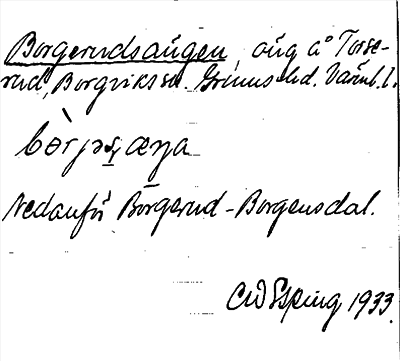 Borgerudsängen, äng å Torse-
rud, Borgviks sn. Grums hd. Värml. l.
bòrjəsæŋa
Nedanför Borgerud - Borgensdal.
CW Esping 1933.